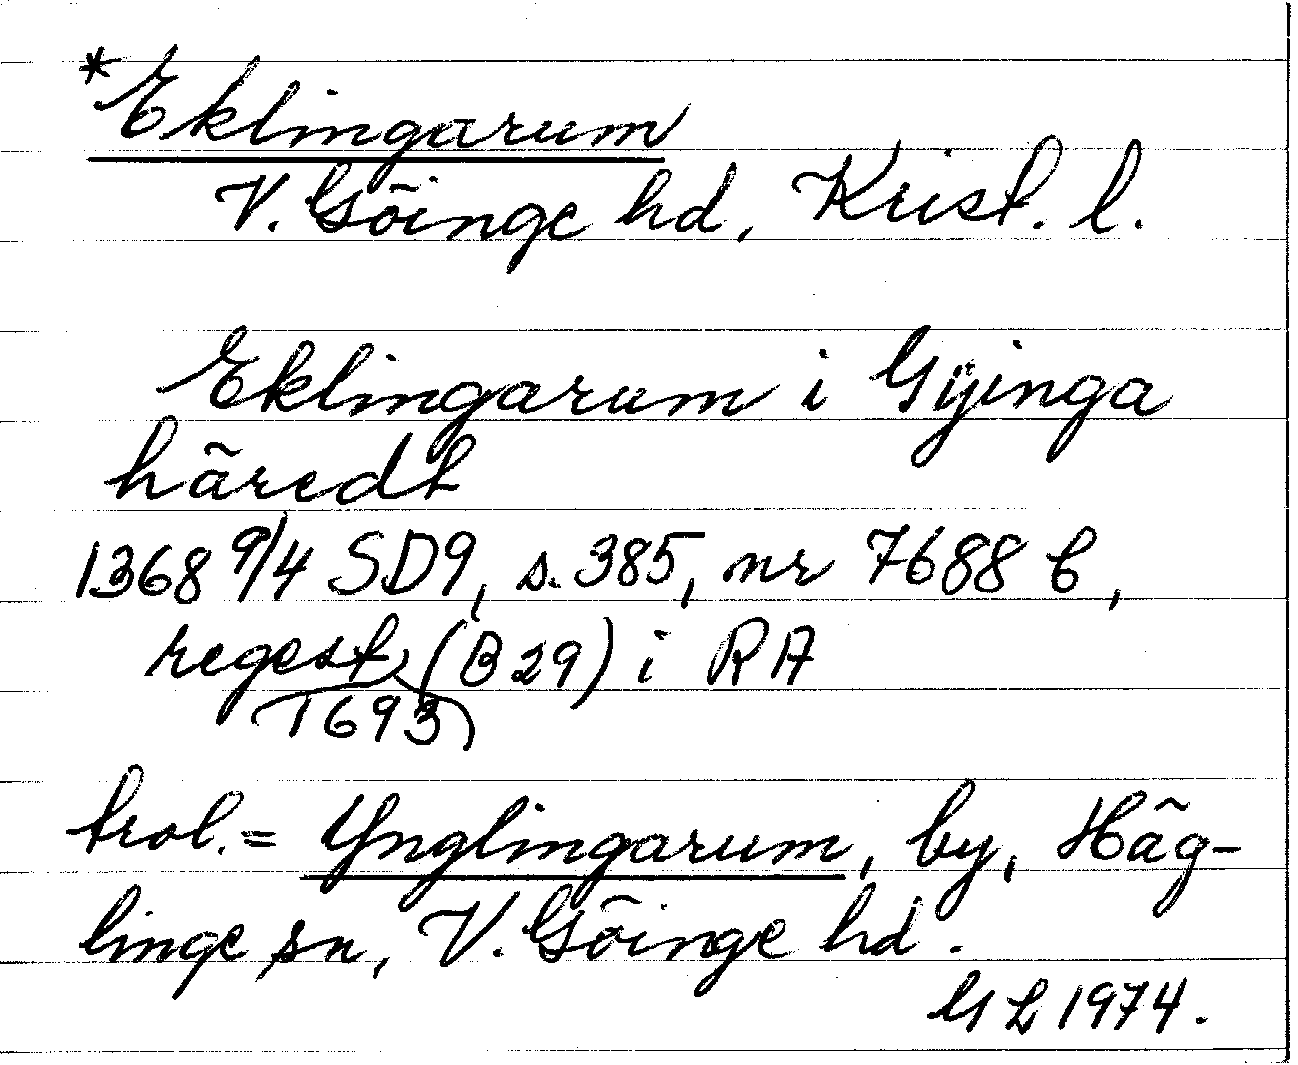 *Eklingarum
V. Göinge hd, Krist. l.
Eklingarum i Gÿinga
häredt
1368 9/4 SD9, s. 385, nr 7688 b,
regest (B 29) i RA
1693
trol. = Ynglingarum, by, Häg-
linge sn, V. Göinge hd.
GL 1974.